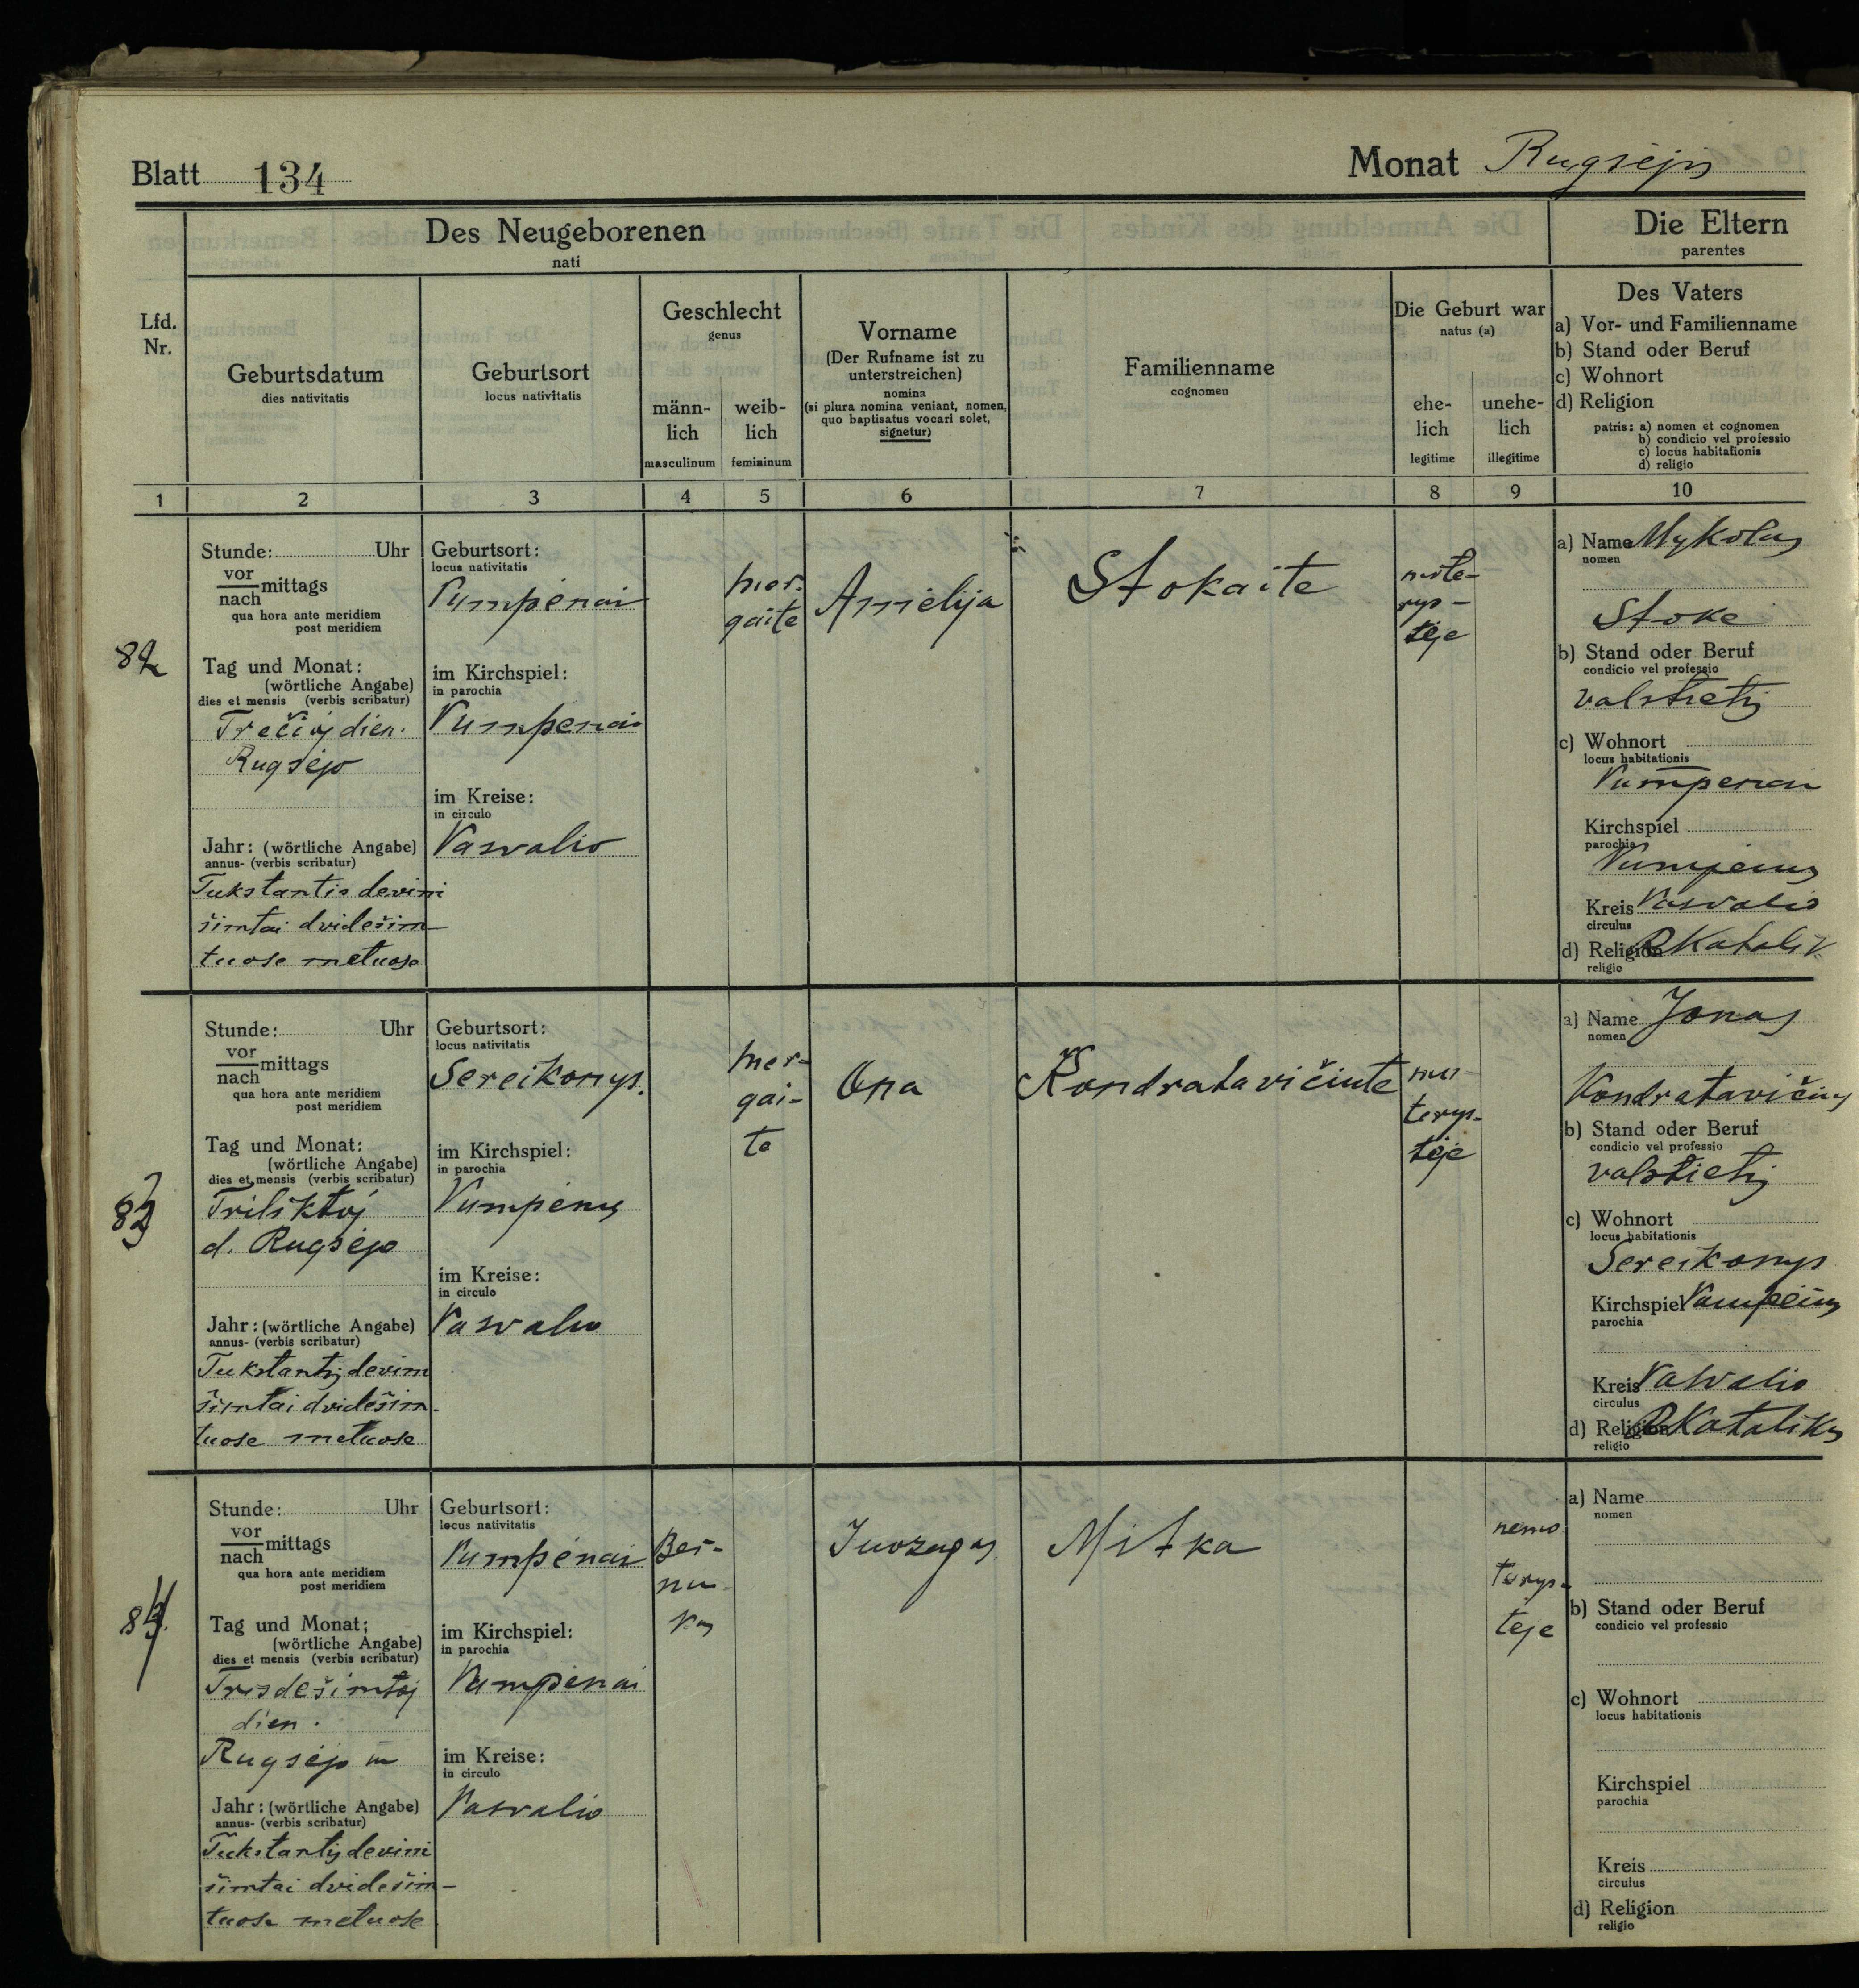 Blatt 134
Monat Rugsėjis
Des Neugeborenen
nati
Die Eltern
parentes
Lfd.
Nr.
Geburtsdatum
dies nativitatis
Geburtsort
locus nativitatis
Geschlecht
genus
männ-
lich
masculinum
weib-
lich
femininum
Vorname
(Der Rufname ist zu
unterstreichen)
nomina
(si plura nomina veniant, nomen,
quo baptisatus vocari solet,
signetur)
Familienname
cognomen
Die Geburt war
natus (a)
ehe-
lich
legitime
unehe-
lich
illegitime
Des Vaters
a) Vor- und Familienname
b) Stand oder Beruf
c) Wohnort
d) Religion
patris: a) nomen et cognomen
b) condicio vel professio
c) locus habitationis
d) religio
1 2 3 4 5 6 7 8 9 10
82
Stunde: Uhr
vor
nach mittags
qua hora ante meridiem
post meridiem
Tag und Monat:
(wörtliche Angabe)
dies et mensis (verbis scribatur)
Trečioj dien.
Rugsėjo
Jahr: (wörtliche Angabe)
annus- (verbis scribatur)
Tukstantis devini
šimtai dvidešim-
tuose metuose
Geburtsort:
locus nativitatis
Pumpėnai
im Kirchspiel:
in parochia
Pumpėnai
im Kreise:
in circulo
Pasvalio
mer-
gaite
Amelija
Stokaite
mote-
rys-
tėje
a) Name Mykolas
nomen
Stoke
b) Stand oder Beruf
condicio vel professio
valstietis
c) Wohnort
locus habitationis
Pumpenai
Kirchspiel
parochia
Pumpenų
Kreis Pasvalio
circulus
d) Religion R Katalik
religio
83
Stunde: Uhr
vor
nach mittags
qua hora ante meridiem
post meridiem
Tag und Monat:
(wörtliche Angabe)
dies et mensis (verbis scribatur)
Triliktoj
d. Rugsėjo
Jahr: (wörtliche Angabe)
annus- (verbis scribatur)
Tukstantis devini
šimtai dvidešim-
tuose metuose
Geburtsort:
locus nativitatis
Sereikonys.
im Kirchspiel:
in parochia
Pumpėnų
im Kreise:
in circulo
Pasvalio
mer-
gai-
te
Ona
Kondratavičiute
mo-
terys-
tėje
a) Name Jonas
nomen
Kondratavičius
b) Stand oder Beruf
condicio vel professio
valstietis
c) Wohnort
locus habitationis
Sereikonys
Kirchspiel Pumpėnų
parochia
Kreis Pasvalio
circulus
d) Religion R Katalikas
religio
84.
Stunde: Uhr
vor
nach mittags
qua hora ante meridiem
post meridiem
Tag und Monat:
(wörtliche Angabe)
dies et mensis (verbis scribatur)
Trisdešimtoj
dien.
Rugsėjo m
Jahr: (wörtliche Angabe)
annus- (verbis scribatur)
Tukstantis devini
šimtai dvidešim-
tuose metuose
Geburtsort:
locus nativitatis
Pumpėnai
im Kirchspiel:
in parochia
Pumpėnai
im Kreise:
in circulo
Pasvalio
Ber-
nu-
kas
Juozapas
Mitka
nemo
terys-
teje
a) Name
nomen
b) Stand oder Beruf
condicio vel professio
c) Wohnort
locus habitationis
Kirchspiel
parochia
Kreis
circulus
d) Religion
religio